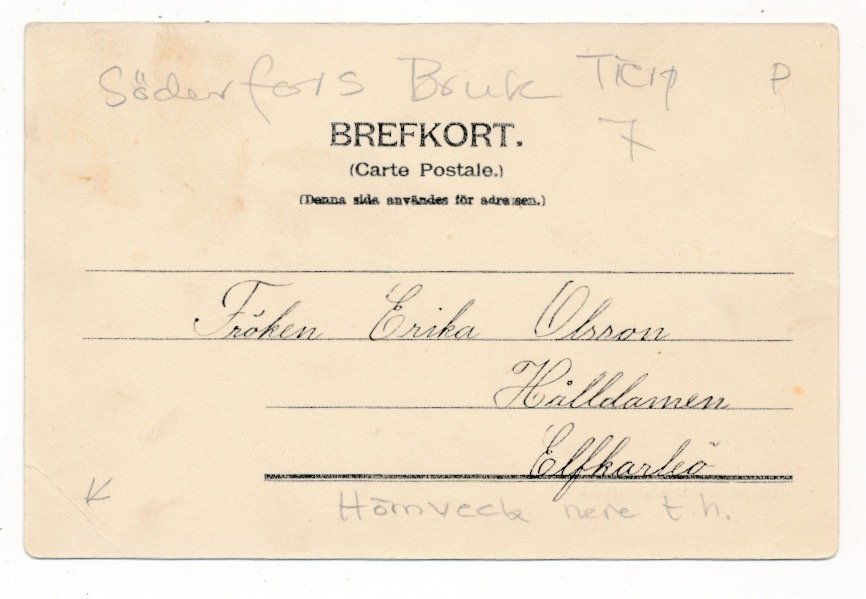 Söderfors Bruk Tierp P
BREFKORT. 7
(Carte Postale.)
(Denna sida användes för adressen.)
Fröken Erika Olsson
Hålldamen
Elfkarleö
K
Hörnveck nere t.h.